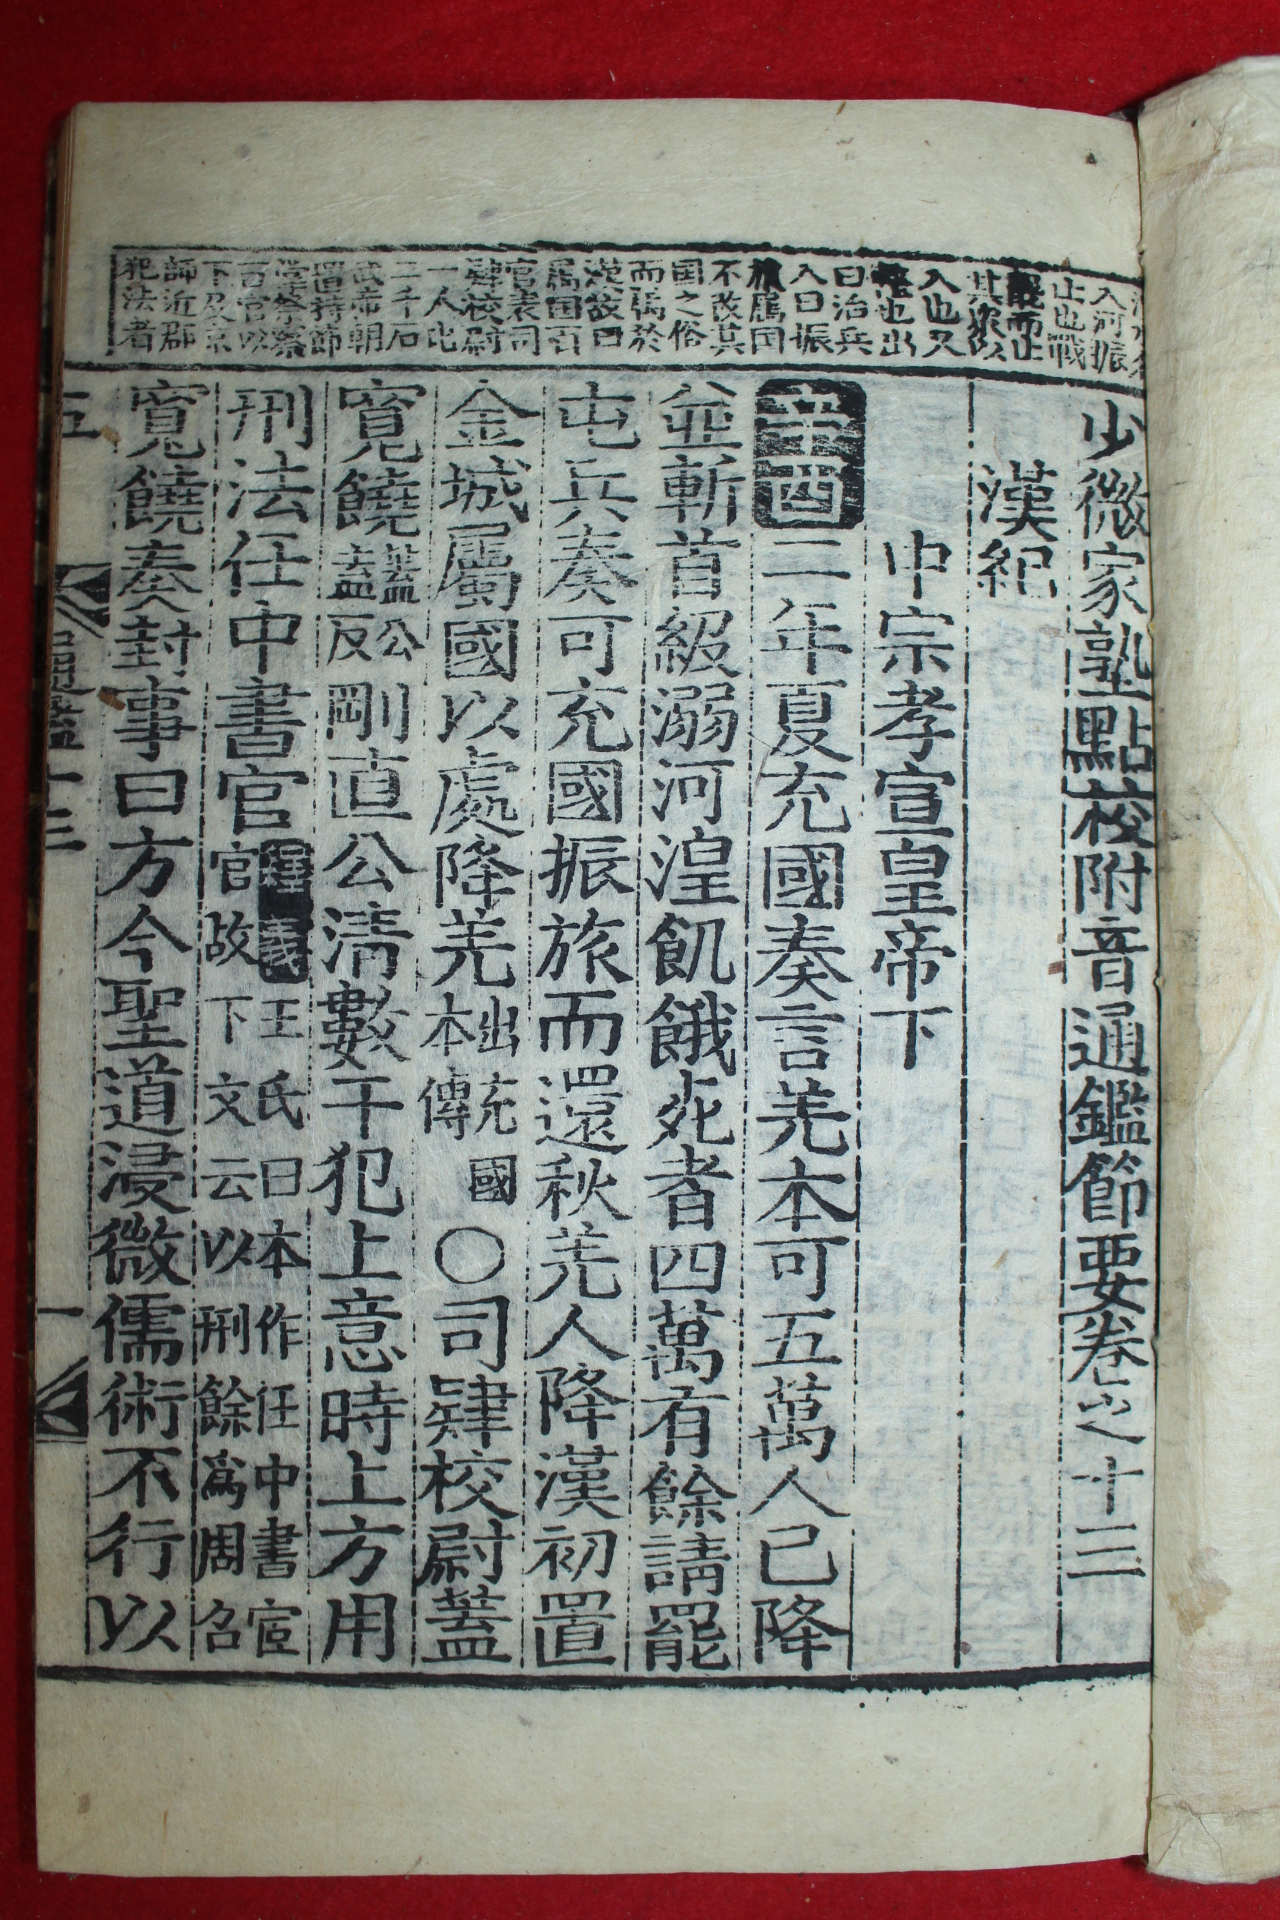 少微家塾點校附音通鑑節要卷之十三
漢紀
中宗孝宣皇帝下
辛酉二年夏充國奏言羌本可五萬人已降
並斬首級溺河湟飢餓死者四萬有餘請罷
屯兵奏可充國振旅而還秋羌人降漢初置
金城屬國以處降羌出充國本傳○司肄校尉蓋
寬饒蓋公盖反剛直公淸數干犯上意時上方用
刑法任中書官釋義王氏曰本作任中書宦官故下文云以刑餘爲周召
寬饒奏封事曰方今聖道浸微儒術不行以
入河振
止也戰
罷而止
其衆以
入也又
整也出
曰治兵
入曰振
旅屬国
不改其
国之俗
而屬於
漢故曰
屬国百
官表司
肄校尉
一人比
二千石
武帝朝
置持節
掌祭察
百官以
下及京
師近郡
犯法者
五
通鑑十三
一